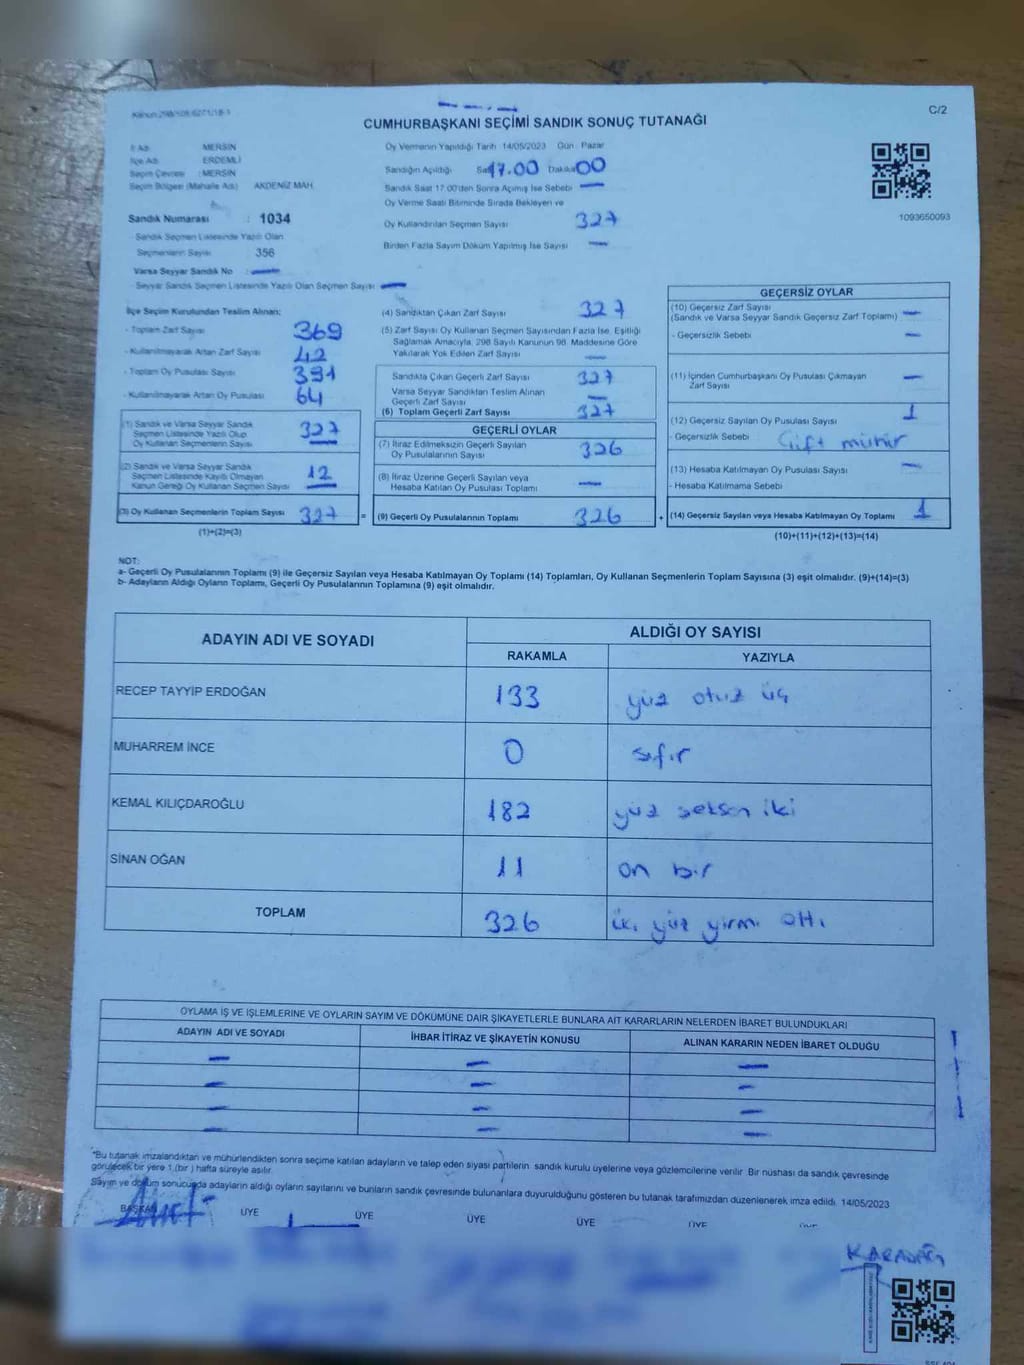 C/2
CUMHURBAŞKANI SEÇİMİ SANDIK SONUÇ TUTANAĞI
İl Adı : MERSİN
İlçe Adı : ERDEMLİ
Seçim Çevresi : MERSİN
Seçim Bölgesi (Mahalle Adı) AKDENİZ MAH.
Sandık Numarası : 1034
Sandık Seçmen Listesinde Yazılı Olan
Seçmenlerin Sayısı 356
Varsa Seyyar Sandık No : —
- Seyyar Sandık Seçmen Listesinde Yazılı Olan Seçmen Sayısı : —
Oy Vermenin Yapıldığı Tarih :14/05/2023 Gün : Pazar
Sandığın Açıldığı Saat 17.00 Dakika 00
Sandık Saat 17.00'den Sonra Açılmış İse Sebebi —
Oy Verme Saati Bitiminde Sırada Bekleyen ve
Oy Kullandırılan Seçmen Sayısı 327
Birden Fazla Sayım Döküm Yapılmış İse Sayısı —
1093650093
İlçe Seçim Kurulundan Teslim Alınan;
- Toplam Zarf Sayısı 369
- Kullanılmayarak Artan Zarf Sayısı 42
- Toplam Oy Pusulası Sayısı 391
- Kullanılmayarak Artan Oy Pusulası 64
(1) Sandık ve Varsa Seyyar Sandık
Seçmen Listesinde Yazılı Olup
Oy Kullanan Seçmenlerin Sayısı 327
(2) Sandık ve Varsa Seyyar Sandık
Seçmen Listesinde Kayıtlı Olmayan
Kanun Gereği Oy Kullanan Seçmen Sayısı 12
(3) Oy Kullanan Seçmenlerin Toplam Sayısı 327 =
(1)+(2)=(3)
(4) Sandıktan Çıkan Zarf Sayısı 327
(5) Zarf Sayısı Oy Kullanan Seçmen Sayısından Fazla İse, Eşitliği
Sağlamak Amacıyla, 298 Sayılı Kanunun 98. Maddesine Göre
Yakılarak Yok Edilen Zarf Sayısı —
Sandıkta Çıkan Geçerli Zarf Sayısı 327
Varsa Seyyar Sandıktan Teslim Alınan
Geçerli Zarf Sayısı —
(6) Toplam Geçerli Zarf Sayısı 327
GEÇERLİ OYLAR
(7) İtiraz Edilmeksizin Geçerli Sayılan
Oy Pusulalarının Sayısı 326
(8) İtiraz Üzerine Geçerli Sayılan veya
Hesaba Katılan Oy Pusulası Toplamı —
(9) Geçerli Oy Pusulalarının Toplamı 326 +
GEÇERSİZ OYLAR
(10) Geçersiz Zarf Sayısı
(Sandık ve Varsa Seyyar Sandık Geçersiz Zarf Toplamı) —
- Geçersizlik Sebebi —
(11) İçinden Cumhurbaşkanı Oy Pusulası Çıkmayan
Zarf Sayısı —
(12) Geçersiz Sayılan Oy Pusulası Sayısı 1
- Geçersizlik Sebebi Çift mühür
(13) Hesaba Katılmayan Oy Pusulası Sayısı —
- Hesaba Katılmama Sebebi
(14) Geçersiz Sayılan veya Hesaba Katılmayan Oy Toplamı 1
(10)+(11)+(12)+(13)=(14)
NOT:
a- Geçerli Oy Pusulalarının Toplamı (9) ile Geçersiz Sayılan veya Hesaba Katılmayan Oy Toplamı (14) Toplamları, Oy Kullanan Seçmenlerin Toplam Sayısına (3) eşit olmalıdır. (9)+(14)=(3)
b- Adayların Aldığı Oyların Toplamı, Geçerli Oy Pusulalarının Toplamına (9) eşit olmalıdır.
ADAYIN ADI VE SOYADI ALDIĞI OY SAYISI
RAKAMLA YAZIYLA
RECEP TAYYİP ERDOĞAN 133 yüz otuz üç
MUHARREM İNCE 0 sıfır
KEMAL KILIÇDAROĞLU 182 yüz seksen iki
SİNAN OĞAN 11 on bir
TOPLAM 326 iki yüz yirmi altı
OYLAMA İŞ VE İŞLEMLERİNE VE OYLARIN SAYIM VE DÖKÜMÜNE DAİR ŞİKAYETLERLE BUNLARA AİT KARARLARIN NELERDEN İBARET BULUNDUKLARI
ADAYIN ADI VE SOYADI İHBAR İTİRAZ VE ŞİKAYETİN KONUSU ALINAN KARARIN NEDEN İBARET OLDUĞU
— — —
— — —
— — —
— — —
*Bu tutanak imzalandıktan ve mühürlendikten sonra seçime katılan adayların ve talep eden siyasi partilerin sandık kurulu üyelerine veya gözlemcilerine verilir. Bir nüshası da sandık çevresinde
görülecek bir yere 1 (bir ) hafta süreyle asılır.
Sayım ve döküm sonucunda adayların aldığı oyların sayılarını ve bunların sandık çevresinde bulunanlara duyurulduğunu gösteren bu tutanak tarafımızdan düzenlenerek imza edildi. 14/05/2023
BAŞKAN ÜYE ÜYE ÜYE ÜYE ÜYE
KARADAĞ